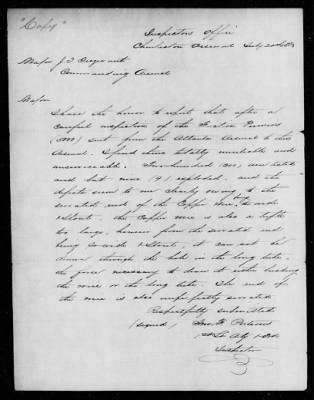 "Copy"
Inspectors Office
Charleston Arsenal July
Major J. T. Trezevant
Commanding Arsenal
Major
I have the honor to report that after a
careful inspection of the Friction Primers
sent from the Atlanta Arsenal to this
Arsenal. I find them totally unreliable and
unserviceable. Two hundred (200) were tested
and but nine (9) exploded, and the
defects seem to me clearly owing to the
serrated end of the Copper wire being too wide
& Stout. the Copper wire is also a
too large, however from the serrated end
being so wide & Stout, it can not be
drawn through the hole in the long tube,
the force necessary to draw it either breaking
the wire or the long tube. The end of
the wire is also imperfectly serrated
Respectfully submitted
(signed)
1st Lt. Arty
Inspector